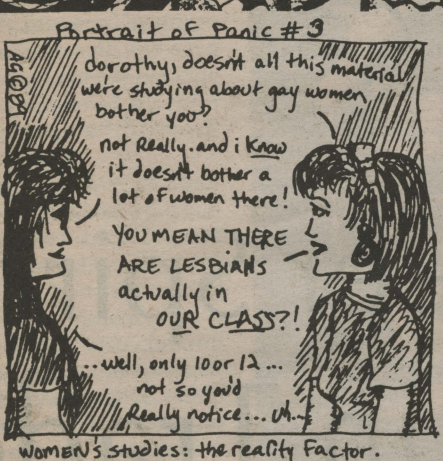 Portrait of Panic #3
AG©'89
dorothy, doesn't all this material
we're studying about gay women
bother you?
not Really. and i KNOW
it doesn't bother a
lot of women there!
YOU MEAN THERE
ARE LESBIANS
actually in
OUR CLASS?!
..well, only 10 or 12 ...
not so you'd
Really notice... uh..
WOMEN'S studies: the reality Factor.